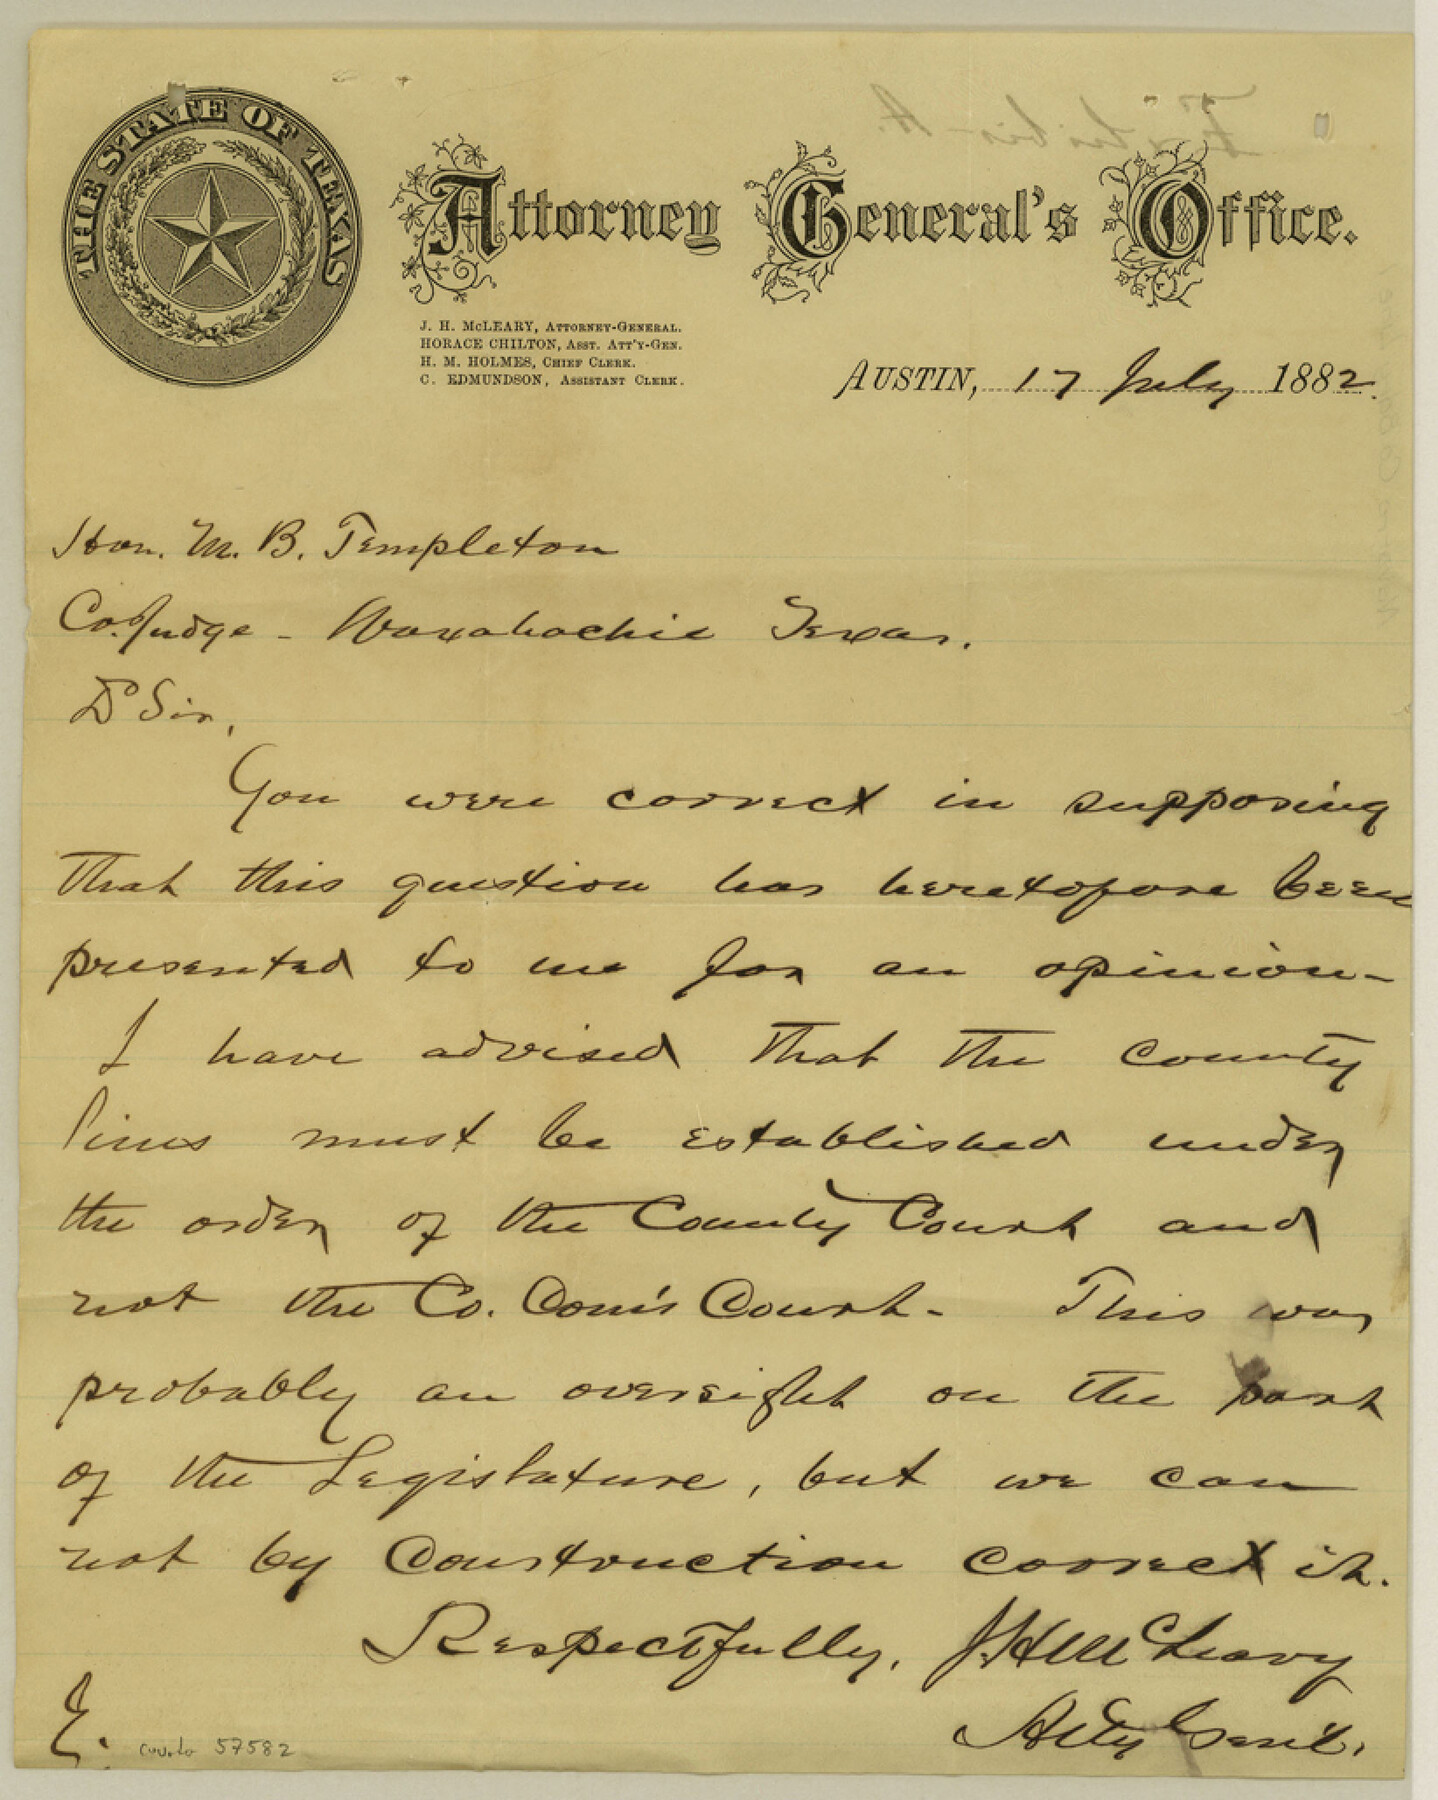 THE STATE OF TEXAS
Attorney General's Office.
J. H. McLEARY, ATTORNEY-GENERAL.
HORACE CHILTON, ASST. ATT'Y-GEN.
H. M. HOLMES, CHIEF CLERK.
C. EDMUNDSON, ASSISTANT CLERK.
AUSTIN, 17 July 1882.
Hon. M. B. Templeton
Co. Judge - Waxahachie Texas.
D Sir,
You were correct in supposing
that this question has heretofore been
presented to me for an opinion-
I have advised that the county
lines must be established under
the order of the County Court and
not the Co. Com's Court- This was
probably an oversight on the part
of the Legislature, but we can
not by Construction correct it.
Respectfully, J. H. McLeary
Atty Genl.
E.
57582